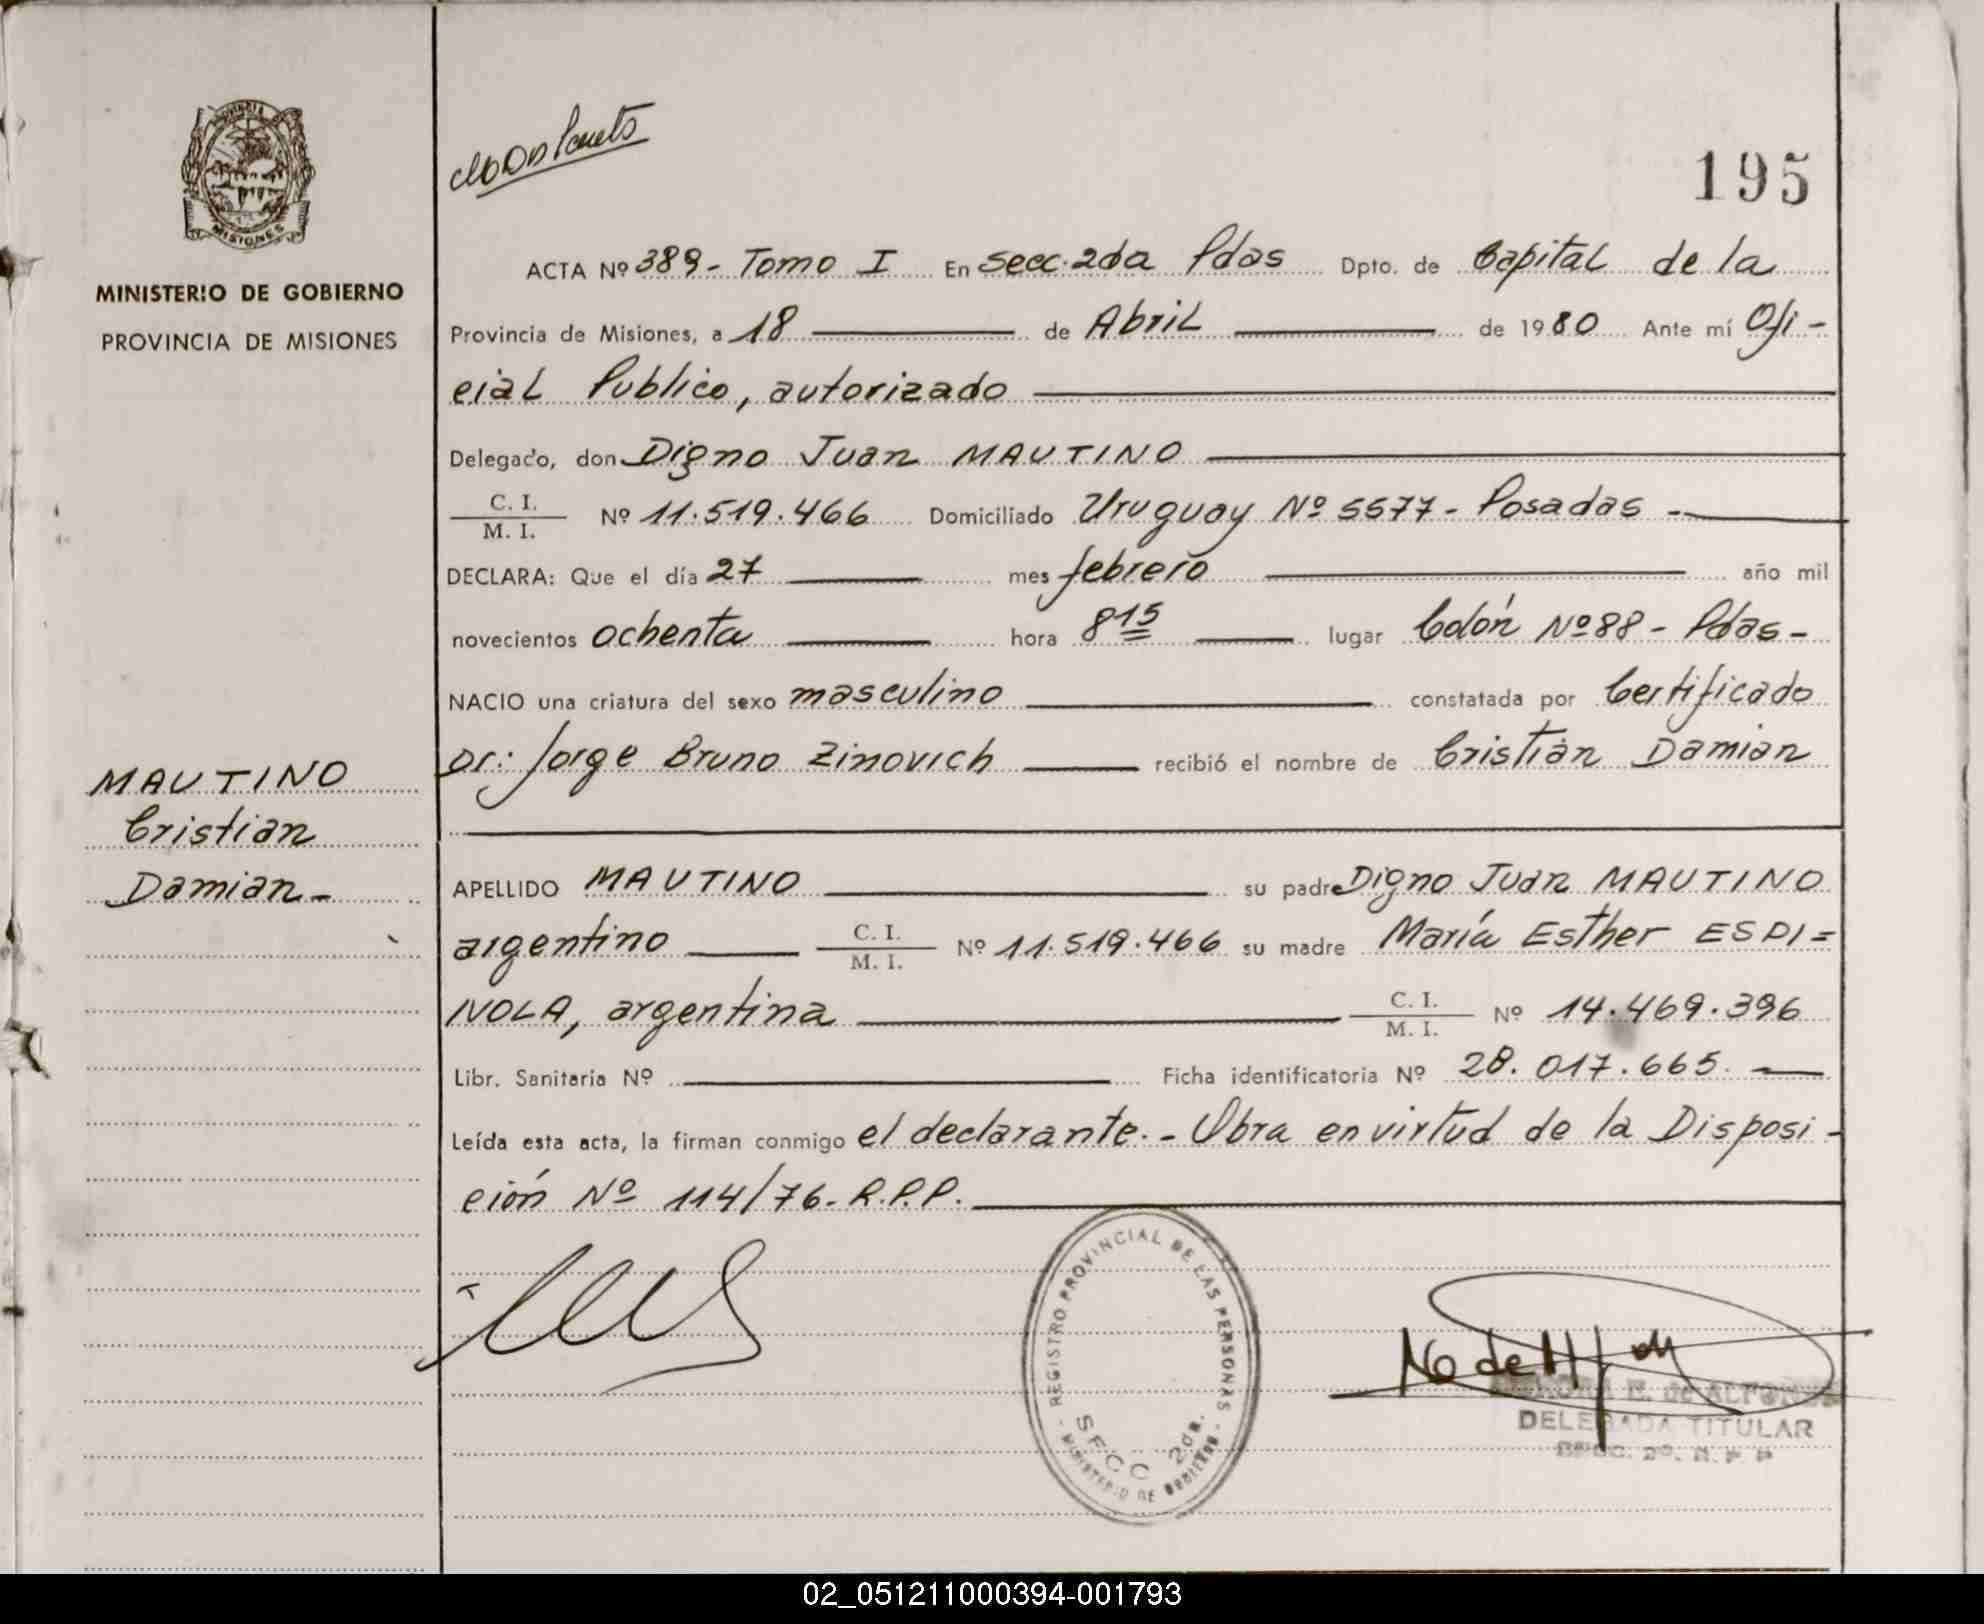 PROVINCIA
MISIONES
MINISTERIO DE GOBIERNO
PROVINCIA DE MISIONES
MAUTINO
Cristian
Damian-
195
ACTA Nº 389- Tomo I En secc. 2da Pdas Dpto. de Capital de la
Provincia de Misiones, a 18 de Abril de 1980 Ante mí Ofi-
cial Publico, autorizado
Delegado, don Digno Juan MAUTINO
C. I.
M. I. Nº 11.519.466 Domiciliado Uruguay Nº 5577- Posadas -
DECLARA: Que el día 27 mes febrero año mil
novecientos ochenta hora 8 15 lugar Colón Nº 88 - Pdas-
NACIO una criatura del sexo masculino constatada por Certificado
Dr: Jorge Bruno Zinovich recibió el nombre de Cristian Damian
APELLIDO MAUTINO su padre Digno Juan MAUTINO
argentino C. I.
M. I. Nº 11.519.466 su madre María Esther ESPI=
NOLA, argentina C. I.
M. I. Nº 14.469.396
Libr. Sanitaria Nº Ficha identificatoria Nº 28.017.665.
Leída esta acta, la firman conmigo el declarante.- Obra en virtud de la Disposi-
ción Nº 114/76- R.P.P.
REGISTRO PROVINCIAL DE LAS PERSONAS -
MINISTERIO DE GOBIERNO -
SECC 2da.
E. de ALFONSO
DELEGADA TITULAR
SECC. 2º. R. P. P
02_051211000394-001793